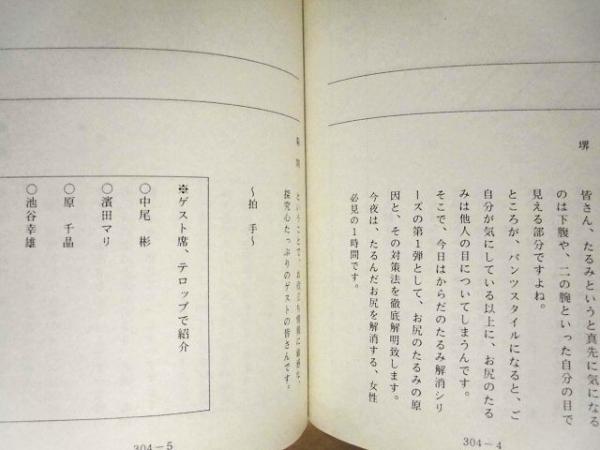 堺
皆さん、たるみというと真先に気になる
のは下腹や、二の腕といった自分の目で
見える部分ですよね。
ところが、パンツスタイルになると、ご
自分が気にしている以上に、お尻のたる
みは他人の目についてしまうんです。
そこで、今日はからだのたるみ解消シリ
ーズの第1弾として、お尻のたるみの原
因と、その対策法を徹底解明致します。
今夜は、たるんだお尻を解消する、女性
必見の1時間です。
304-4
ということで、お役立ち情報に
探究心たっぷりのゲストの皆さんです。
〜拍 手〜
※ゲスト席、テロップで紹介
○中尾 彬
○濱田マリ
○原 千晶
○池谷幸雄
304-5